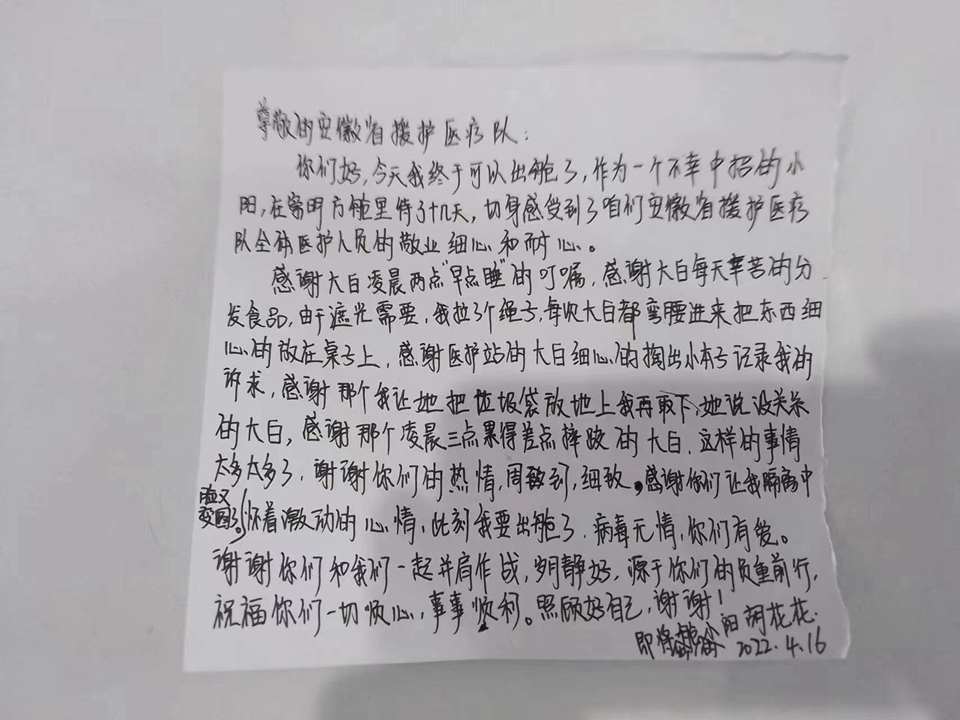 尊敬的安徽省援护医疗队：
你们好，今天我终于可以出舱了，作为一个不幸中招的小
阳，在客明方舱里待了十几天，切身感受到了咱们安徽省援护医疗
队全体医护人员的敬业细心和耐心。
感谢大白凌晨两点"早点睡"的叮嘱，感谢大白每天辛苦的分
发食品，由于遮光需要，我拉了个绳子，每次大白都弯腰进来把东西细
心的放在桌子上，感谢医护站的大白细心的掏出小本子记录我的
诉求，感谢那个我让她把垃圾袋放地上我再取下，她说没关系
的大白，感谢那个凌晨三点累得差点摔跤的大白，这样的事情
太多太多了，谢谢你们的热情，周到，细致。感谢你们让我隔离中
脸又
变圆了。怀着激动的心情，此刻我要出舱了，病毒无情，你们有爱。
谢谢你们和我们一起并肩作战，岁月静好，源于你们的负重前行，
祝福你们一切顺心，事事顺利。照顾好自己，谢谢！
即将 小阳胡花花
2022.4.16